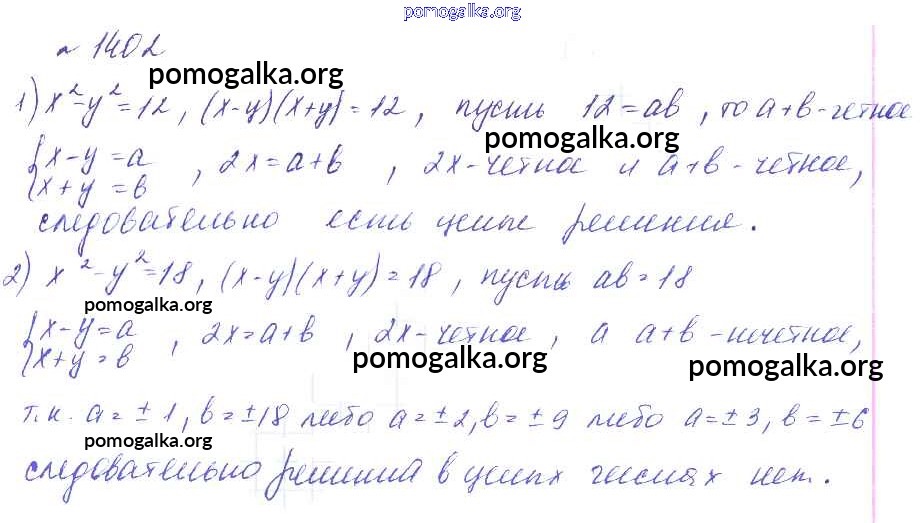 pomogalka.org
№ 1402
pomogalka.org
1) x²-y²=12, (x-y)(x+y)=12, пусть 12=ab, то a+b-четное
pomogalka.org
{x-y=a
{x+y=b , 2x=a+b , 2x-четное и a+b-четное,
следовательно есть целые решения.
2) x²-y²=18, (x-y)(x+y)=18, пусть ab=18
pomogalka.org
{x-y=a
{x+y=b , 2x=a+b , 2x-четное, а a+b-нечетное,
pomogalka.org pomogalka.org
т.к. a=±1, b=±18 либо a=±2, b=±9 либо a=±3, b=±6
pomogalka.org
следовательно решений в целых числах нет.